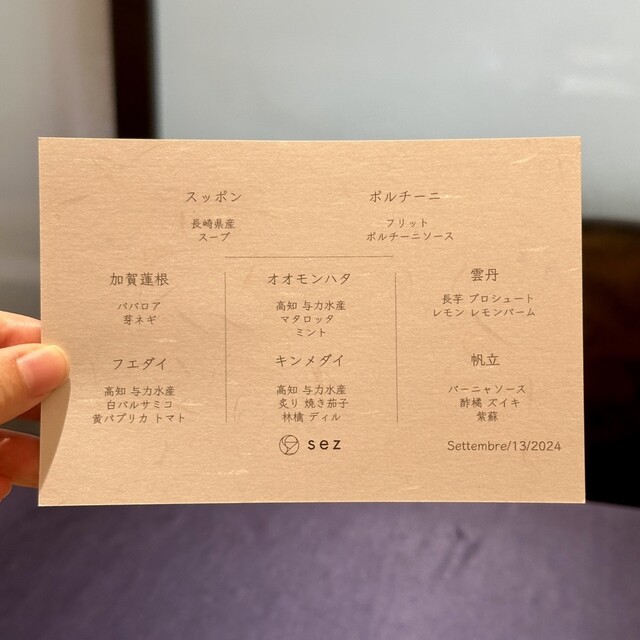 スッポン
長崎県産
スープ
ポルチーニ
フリット
ポルチーニソース
加賀蓮根
ババロア
芽ネギ
オオモンハタ
高知 与力水産
マタロッタ
ミント
雲丹
長芋 プロシュート
レモン レモンバーム
フエダイ
高知 与力水産
白バルサミコ
黄パプリカ トマト
キンメダイ
高知 与力水産
炙り 焼き茄子
林檎 ディル
帆立
バーニャソース
酢橘 ズイキ
紫蘇
sez
Settembre/13/2024